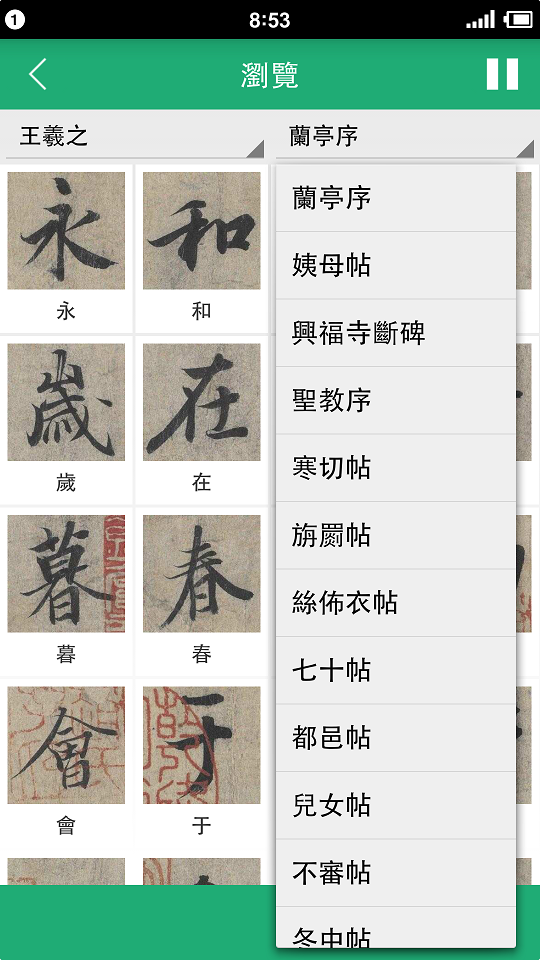 1
8:53
瀏覽
王羲之
蘭亭序
永
和
永
和
歲
在
歲
在
暮
春
暮
春
會
于
會
于
蘭亭序
姨母帖
興福寺斷碑
聖教序
寒切帖
旃罽帖
絲佈衣帖
七十帖
都邑帖
兒女帖
不審帖
冬中帖